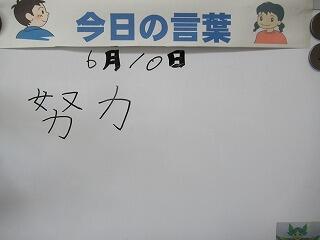 今日の言葉
6月10日
努力